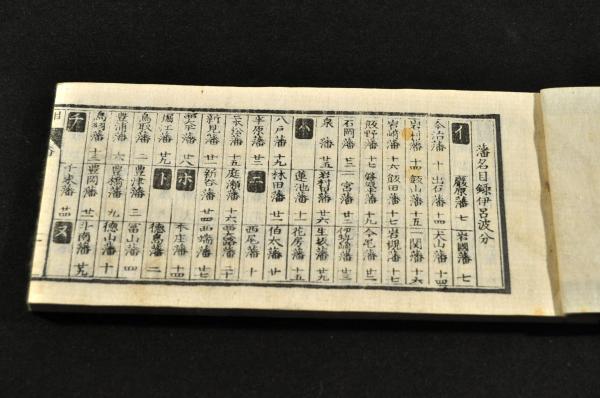 藩名目録伊呂波分
イ 巌原藩 七 岩國藩 七
今治藩 十 出石藩 十四 犬山藩 十四
岩村藩 十四 飯山藩 十五 一関藩 十六
岩崎藩 十六 飯田藩 十七 岩槻藩 十七
飯野藩 十七 藩 十九 今尾藩 廿
石岡藩 一宮藩 廿三 伊勢崎藩 廿三
泉藩 廿三 岩村藩 生坂藩 廿九
ハ 蓮池藩 十一 花房藩 十五
八戸藩 十九 林田藩 廿二 伯太藩 廿
半原藩 廿一 ニ 西尾藩 十
藩 十五 庭瀬藩 十六 西大路藩 二十
新見藩 廿一 新谷藩 廿四 西端藩 廿七
藩 廿八 ホ 本庄藩 十四
堀江藩 廿九 ト 徳島藩 二
鳥取藩 二 豊津藩 三 富山藩 四
豊浦藩 六 豊橋藩 九 徳山藩 十
鳥羽藩 十三 豊岡藩 廿 斗南藩 廿九
チ 千束藩 廿四 ヌ